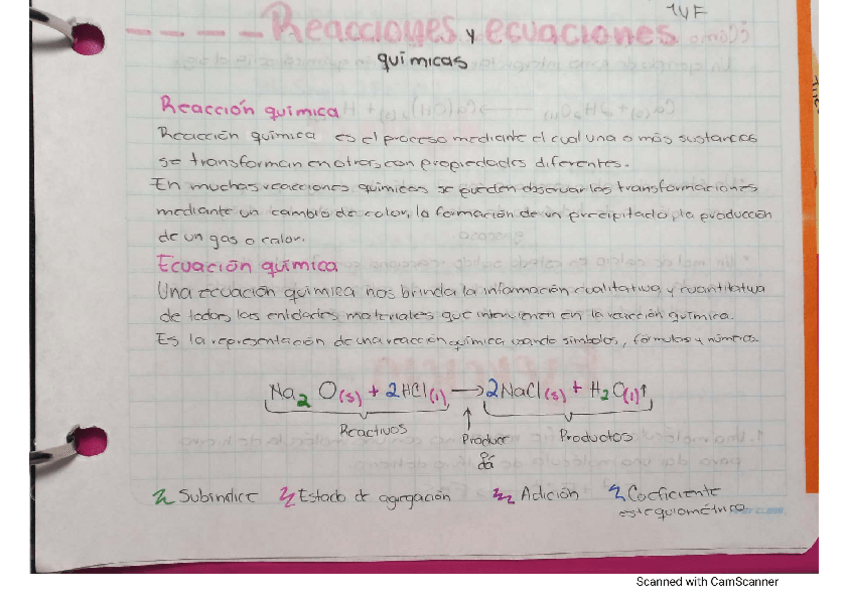 1YF
Reacciones y ecuaciones
químicas
Reacción química
Reacción química es el proceso mediante el cual una o más sustancias
se transforman en otras con propiedades diferentes.
En muchas reacciones químicas se pueden observar las transformaciones
mediante un cambio de color, la formación de un precipitado, la producción
de un gas o calor.
Ecuación química
Una ecuación química nos brinda la información cualitativa y cuantitativa
de todas las entidades materiales que intervienen en la reacción química.
Es la representación de una reacción química usando símbolos, fórmulas y números.
Na₂ O(s) + 2HCl(l) → 2NaCl(s) + H₂O(l)↑
Reactivos Producir ó da Productos
Subíndice Estado de agregación Adición Coeficiente
estequiométrico
Scanned with CamScanner